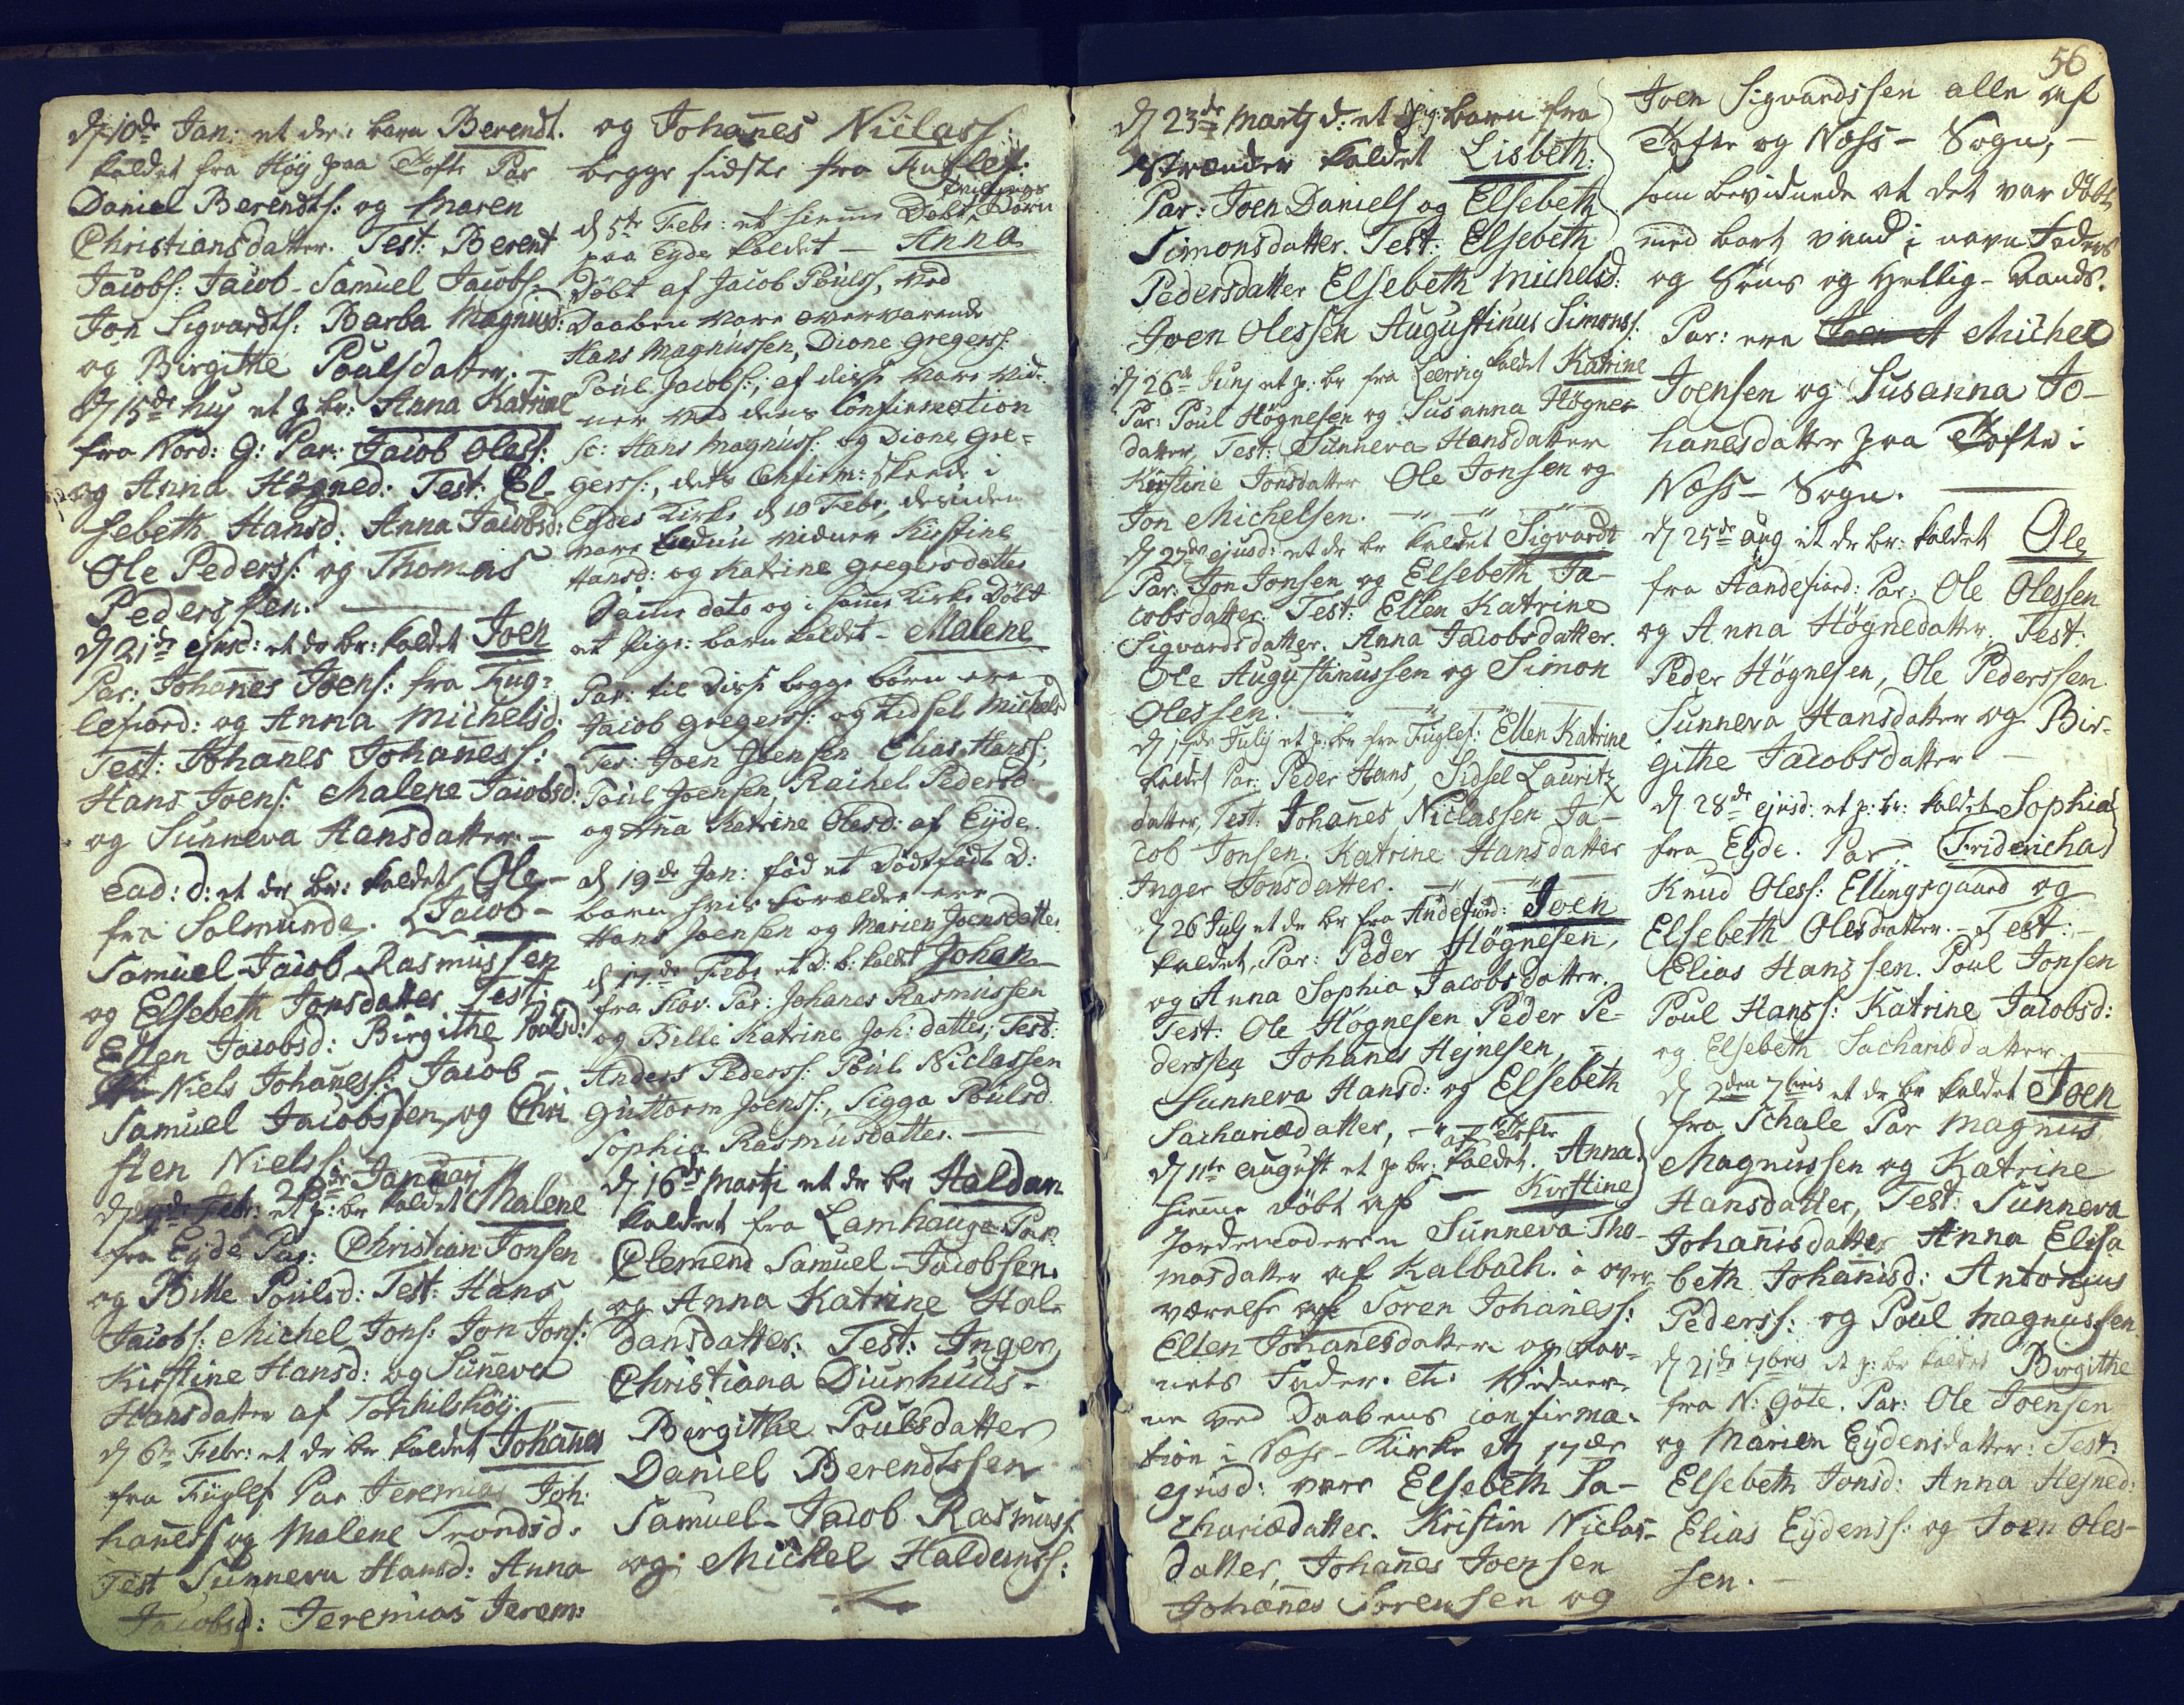 d 10de Jan: et dr: barn Berendt.
kaldet fra Høy paa Tofte Par
Daniel Berendts: og Maren
Christiansdatter. Test: Berent
Jacobs: Jacob-Samuel Jacobs-
Jon Sigvardts: Barba Magnusd:
og Birgitte Poulsdatter. —
d 15de huj et p. br: Anna Katrine
fra Nord: G: Par: Jacob Oless:
og Anna Høgned: Test: El-
sebeth Hansd: Anna Jacobsd:
Ole Peders: og Thomas
Pederssen. —
d 21de ejusd: et dr br: kaldet Joen
Par: Johañes Joens: fra Fug-
lefiord: og Anna Michelsd:
Test: Johanes Johaness:
Hans Joens: Malene Jacobsd:
og Sunneva Hansdatter. —
ead: d: et dr br: kaldet Ole-
fra Solmunde. Jacob-
Samuel-Jacob Rasmussen
og Elsebeth Jonsdatter Test
Ellen Jacobsd: Birgithe Poulsd:
Niels Johaness: Jacob-
Samuel Jacobssen og Chri
sten Niels:
28de Januarj
d Febr: et p: br kaldet Malene
fra Eyde Par: Christian Jonsen
og Bille Poulsd: Test: Hans
Jacobs: Michel Jons: Jon Jons:
Kirstine Hansd: og Suneva
Hansdatter af Torkilshøy. —
d 6te Febr: et dr br kaldet Johañes
fra Fuglef Par Jeremias Joh:
haness og Malene Trondsd.
Test Sunneva Hansd: Anna
Jacobsd: Jeremias Jerem:
og Johañes Niclass:
begge sidste fra Fuglef:
d 5te Febr: et hieme Døbt Tvillinge Barn
paa Eyde kaldet — Anna
Døbt af Jacob Pouls, ved
Daaben vare overværende
Hans Magnussen, Dione Gregers:
Poul Jacobs:, af disse vare vid-
ner ved dens Confirmation
sc: Hans Magnuss: og Dione Gre-
gerss:, dets Confirm: skeede i
Eydes Kirke d 10 Febr, desuden
vare vidner Kirstine
Hansd: og Katrine Gregersdatter
Same dato og i same Kirke Døbt
et Pige: barn kaldet — Malene
Par: til disse begge børn ere
Jacob Gregerss: og Sidsel Michelsd
Tes: Joen Joensen Elias Hanss:
Poul Joensen Rachel Pedersd
og Aña Katrine Olesd: af Eyde.
d 19de Jan: fød et Dødfødt D:
barn hvis Forældre ere
Hans Joensen og Marien Joensdatter
d 17de Febr et D: b: kaldt Johan
fra Kov: Par: Johanes Rasmussen
og Bille Katrine Joh: datter; Test:
Anders Pederss: Poul Niclassen
Guttorm Joenss:, Sigga Poulsd
Sophia Rasmusdatter. —
d 16de Martj et dr br Haldan
kaldet fra Lamhauge Par:
Clemend Samuel-Jacobsen.
og Anna Katrine Hal-
dansdatter: Test: Inger
Christiana Diurhuus-
Birgithe Poulsdatter
Daniel Berendtssen
Samuel-Jacob Rasmuss
og Michel Haldanss:
56
d 23de Martj d: et Pig: barn fra
Strænder kaldet Lisbeth.
Par: Joen Daniels og Elsebeth
Simonsdatter. Test: Elsebeth
Pedersdatter Elsebeth Michelsd:
Joen Olessen Augustinus Simons:
d 26de Junj et p: br fra Leervig kaldet Katrine
Par: Poul Høgnesen og Susanna Høgne-
datter, Test: Sunneva Hansdatter
Kirstine Jonsdatter Ole Jonsen og
Jon Michelsen. —
d 27de ejusd: et dr br kaldet Sigvardt
Par: Jon Jonsen og Elsebeth Ja-
cobsdatter. Test: Ellen Katrine
Sigvardsdatter. Anna Jacobsdatter.
Ole Augustinussen og Simon
Olessen. —
d 17de July et p: br fra Fuglef: Ellen Katrine
kaldet Par: Peder Hans Sidsel Lauritz
datter, Test: Johañes Niclassen Ja-
cob Jonsen. Katrine Hansdatter
Inger Jonsdatter. —
d 26 July et dr br fra Andefiord: Joen
kaldet, Par: Peder Høgnesen,
og Anna Sophia Jacobsdatter.
Test: Ole Høgnesen Peder Pe-
derssen Johanes Hejnesen, —
Sunneva Hansd: og Elsebeth
Sachariædatter, — af Tofte
d 11te august et p br: kaldet. Anna
hieme døbt af — Kirstine
Jordemoderen Sunneva Tho-
masdatter af Kalbach. i over-
værelse af Soren Johaness:
Ellen Johanesdatter og bar-
nets Fader. etc. Vidner-
ne ved Daabens confirma-
tion i Næss-Kirke d 17de
ejusd: vare Elsebeth Sa-
chariædatter. Kristin Niclas-
datter, Johañes Joensen
Johañes Sørensen og
Joen Sigvardssen alle af
Tofte og Næss- Sogn, —
som bevidnede at det var døbt
med bart vand i navn Faders
og Søns og Hellig-Aands.
Par: ere Joen Michel
Joensen og Susanna Jo-
hanesdatter paa Tofte i
Næss- Sogn. —
d 25de aug et dr br: kaldet Ole
fra Andefiord: Par: Ole Olessen
og Anna Høgnedatter. Test:
Peder Høgnesen, Ole Pederssen
Sunneva Hansdatter og Bir-
githe Jacobsdatter —
d 28de ejusd: et p: br: kaldet Sophia
fra Eyde. Par: Fridericha
Knud Oless: Ellingsgaard og
Elsebeth Olesdatter. — Test: —
Elias Hanssen. Poul Jonsen
Poul Hanss: Katrine Jacobsd:
og Elsebeth Sachariædatter. —
d 2den 7bris et dr br kaldet Joen
fra Schale Par Magnus
Magnussen og Katrine
Hansdatter, Test: Sunneva
Johañisdatter Anna Elisa
beth Johañisd: Antonius
Pederss: og Poul Magnussen
d 21de 7bris et p: br kaldet Birgithe
fra N: Gøte. Par: Ole Joensen
og Marien Eydensdatter: Test:
Elsebeth Jonsd: Anna Hejned:
Elias Eydenss: og Joen Oles-
sen. —